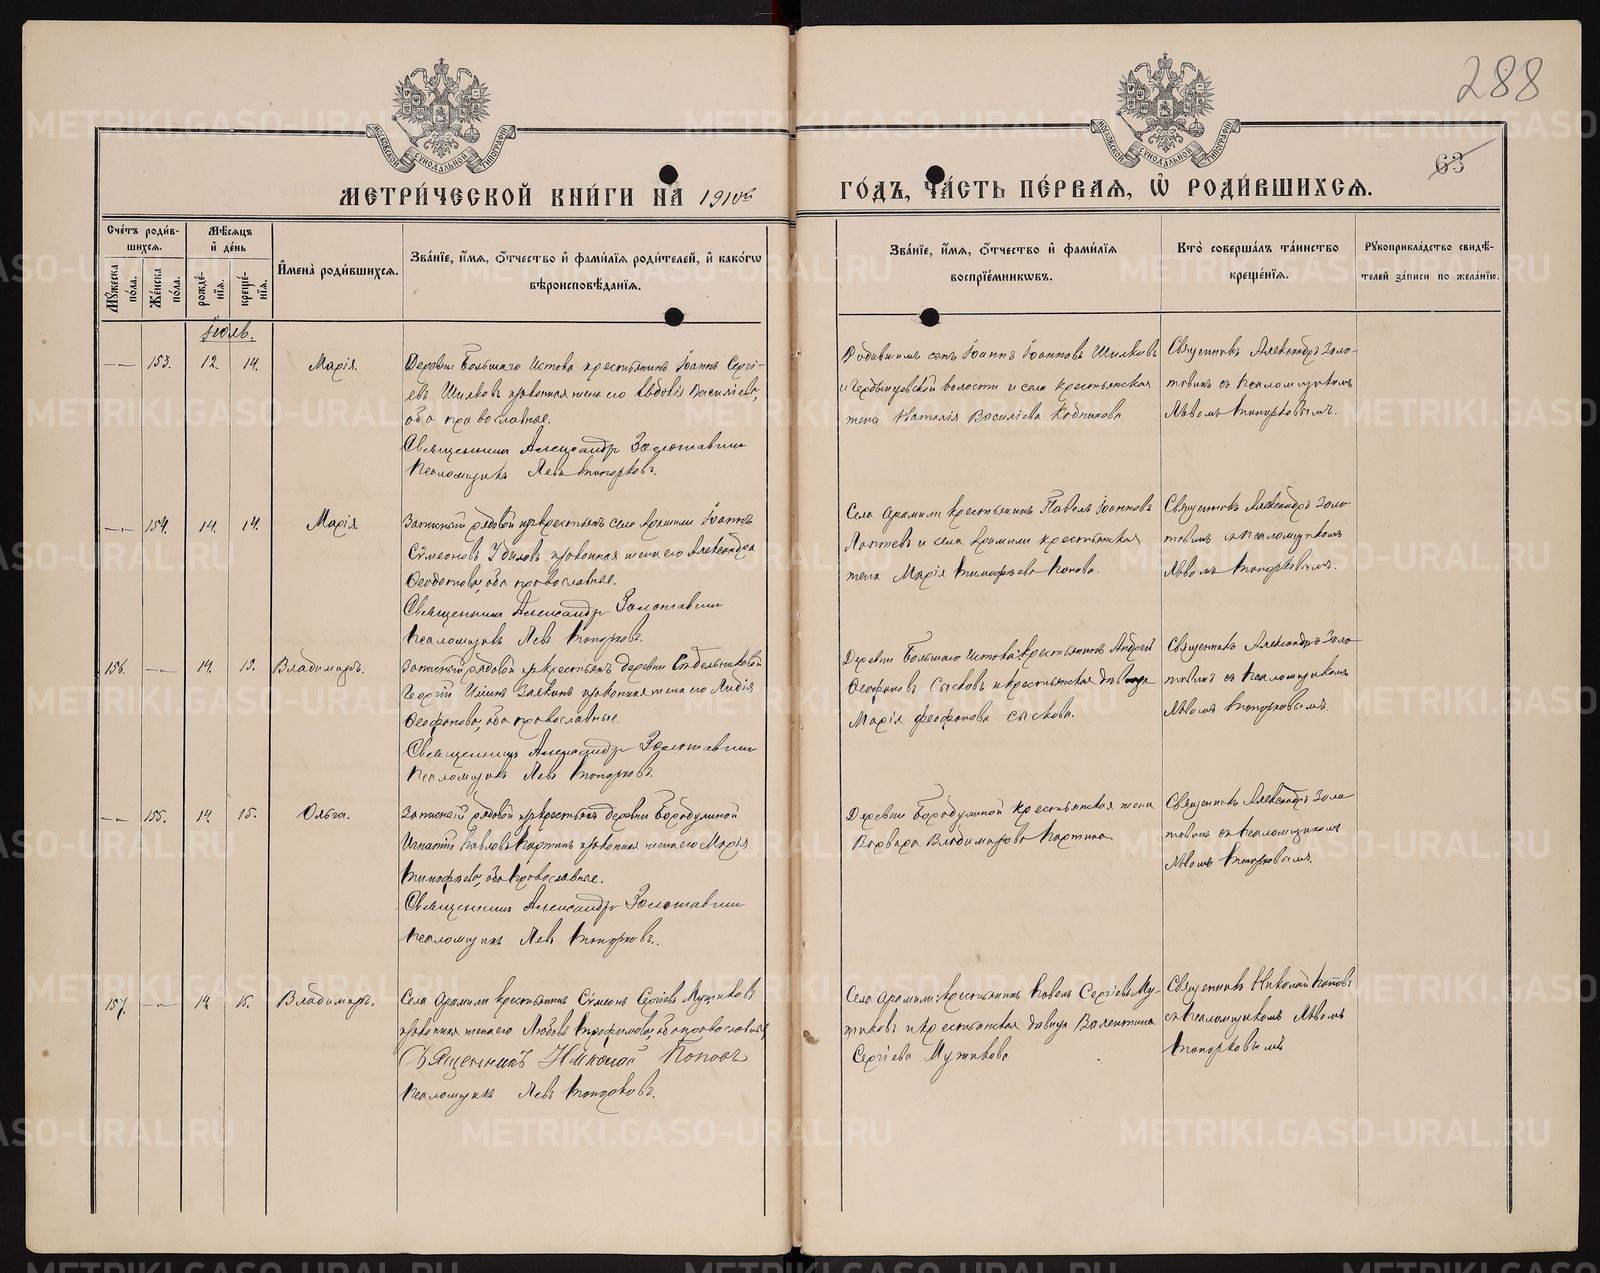 288
63
МОСКОВСКОЙ СУНОДАЛЬНОЙ ТИПОГРАФІИ
МОСКОВСКОЙ СУНОДАЛЬНОЙ ТИПОГРАФІИ
МЕТРИ́ЧЕСКОЙ КНИ́ГИ НА 1910й ГО́ДЪ, ЧА́СТЬ ПЕ́РВАѦ, Ѡ҆ РОДИ́ВШИХСѦ.
Сче́тъ роди́вшихсѧ.
Мꙋ́жеска по́ла.
Же́нска по́ла.
Мѣ́сѧцъ и҆ де́нь
рожде́нїѧ.
креще́нїѧ.
И҆мена̀ роди́вшихсѧ.
Зва́нїе, и҆́мѧ, ѻ҆́тчество и҆ фами́лїѧ роди́телей, и҆ како́гѡ
вѣроисповѣ́данїѧ.
Зва́нїе, и҆́мѧ, ѻ҆́тчество и҆ фами́лїѧ
воспрїе́мникѡвъ.
Кто̀ соверша́лъ та́инство
креще́нїѧ.
Рꙋкоприкла́дство свидѣ́-
телей за́писи по жела́нїю.
Іюль.
153. 12. 14. Марія.
Деревни Большаго Истока крестьянинъ Іоаннъ Сергі-
евъ Шилковъ и законная жена его Евдокія Василіева,
оба православные.
Священникъ Александр Золотавин
Псаломщикъ Левъ Топорковъ.
Родившимъ сынъ Іоаннъ Іоанновъ Шилковъ
волости и села крестьянская
жена Наталія Василіева
Священникъ Александръ Золо-
тавинъ съ псаломщикомъ
Львомъ Топорковымъ.
154. 14. 14. Марія
Запасный рядовой изъ крестьянъ села Арамили Іоаннъ
Сѵмеоновъ и законная жена его Александра
Ѳеодотова, оба православные.
Священникъ Александр Золотавин
Псаломщикъ Левъ Топорковъ.
Села Арамили крестьянинъ Павелъ Іоанновъ
Лаптевъ и села Арамили крестьянская
жена Марія Тимоѳеева Попова.
Священникъ Александръ Золо-
тавинъ съ псаломщикомъ
Львомъ Топорковымъ.
156. 14. 15. Владимиръ.
Запасный рядовой изъ крестьянъ деревни
Георгій и законная жена его Лидія
Ѳеофанова, оба православные.
Священникъ Александр Золотавин
Псаломщикъ Левъ Топорковъ.
Деревни Большаго Истока: крестьянинъ Андрей
Ѳеофановъ Сысковъ и крестьянская дѣвица
Марія Ѳеофанова Сыскова.
Священникъ Александръ Золо-
тавинъ съ псаломщикомъ
Львомъ Топорковымъ.
155. 14. 15. Ольга.
Запасный рядовой изъ крестьянъ деревни Бородулиной
Игнатій Павловъ Картинъ и законная жена его Марія
Тимоѳеева, оба православные.
Священникъ Александр Золотавин
Псаломщикъ Левъ Топорковъ.
Деревни Бородулиной крестьянская жена
Варвара Владимирова Картина
Священникъ Александръ Золо-
тавинъ съ псаломщикомъ
Львомъ Топорковымъ.
157. 14. 15. Владимиръ.
Села Арамили крестьянинъ Сѵмеонъ Сергіевъ Мужиковъ
и законная жена его Любовь Трофимова, оба православные,
Священникъ Николай Поповъ
Псаломщикъ Левъ Топорковъ.
Села Арамили: крестьянинъ Павелъ Сергіевъ Му-
жиковъ и крестьянская дѣвица Валентина
Сергіева Мужикова
Священникъ Николай Поповъ
съ псаломщикомъ Львомъ
Топорковымъ
METRIKI.GASO-URAL.RU